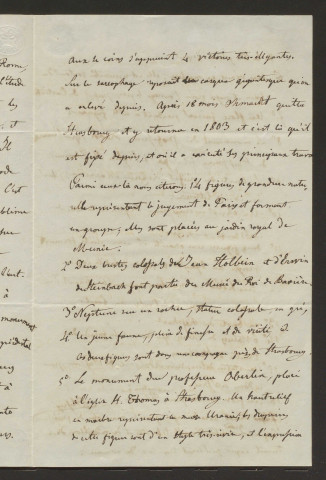 Rome,
l'étude
les
et
Il
C'est
sublime
sur
à
monument
aux 4 coins s'appuient 4 victoires très élégantes.
Sur le sarcophage reposait un casque gigantesque qu'on
a enlevé depuis. Après 18 mois Ohmacht quitta
Strasbourg et y retourna en 1803 et c'est là qu'il
est fixé depuis, et où il a exécuté ses principaux travaux
Parmi ceux-là nous citerons: 14 figures de grandeur natu-
relle représentant le jugement de Paris et formant
un groupe; elles sont placées au jardin royal de
Munic.
2° Deux bustes colossals de Jean Holbein et d'Erwin
de Steinbach font partie du Musée du Roi de Bavière.
3° Neptune sur un rocher, statue colossale, en grès,
4° Un jeune faune, plein de finesse et de vérité
Ces deux figures sont dans une campagne près de Strasbourg.
5° Le monument du professeur Oberlin, placé
à l'église St Thomas à Strasbourg. Un haut relief
en marbre représentant la muse Uranie; les draperies
de cette figure sont d'un style très vrai, et l'expression